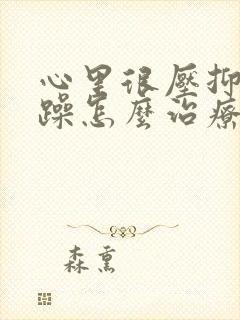 心里很壓抑
躁怎麼治療
森熏